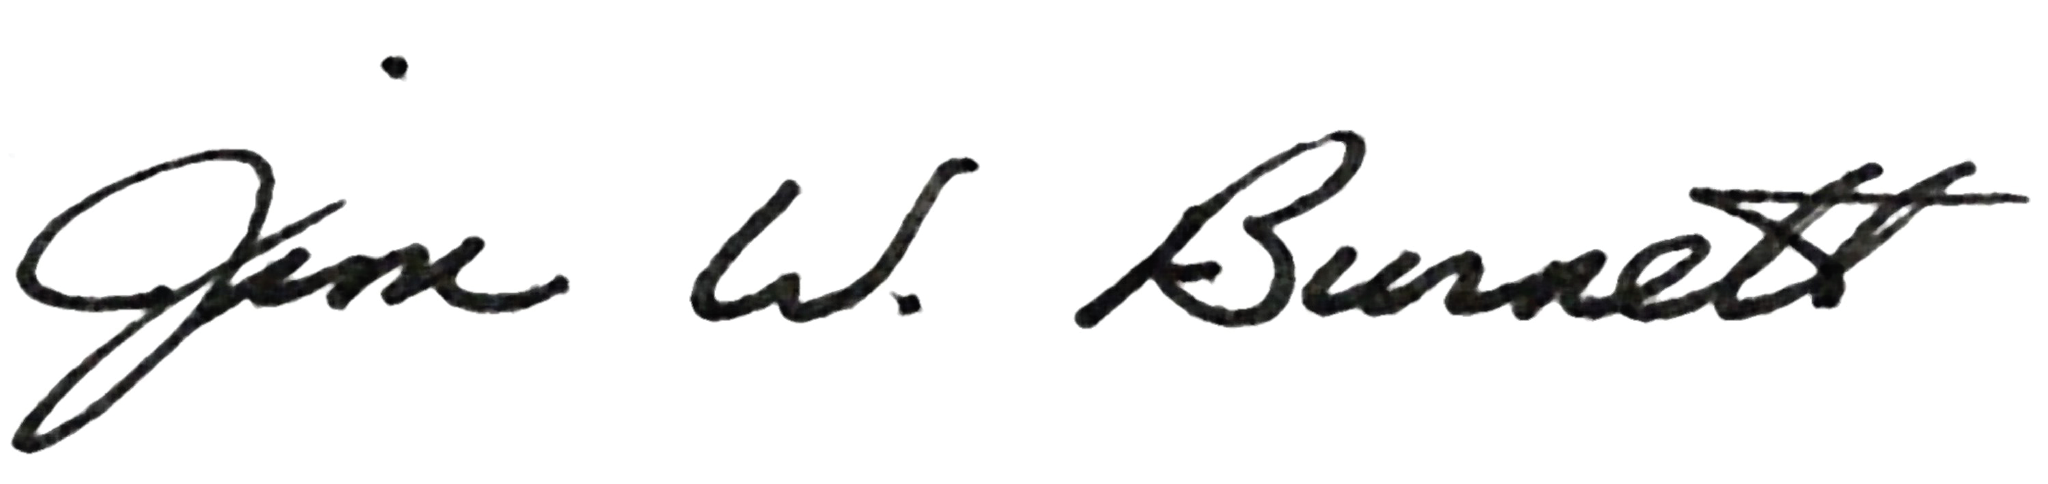 Jim W. Burnett